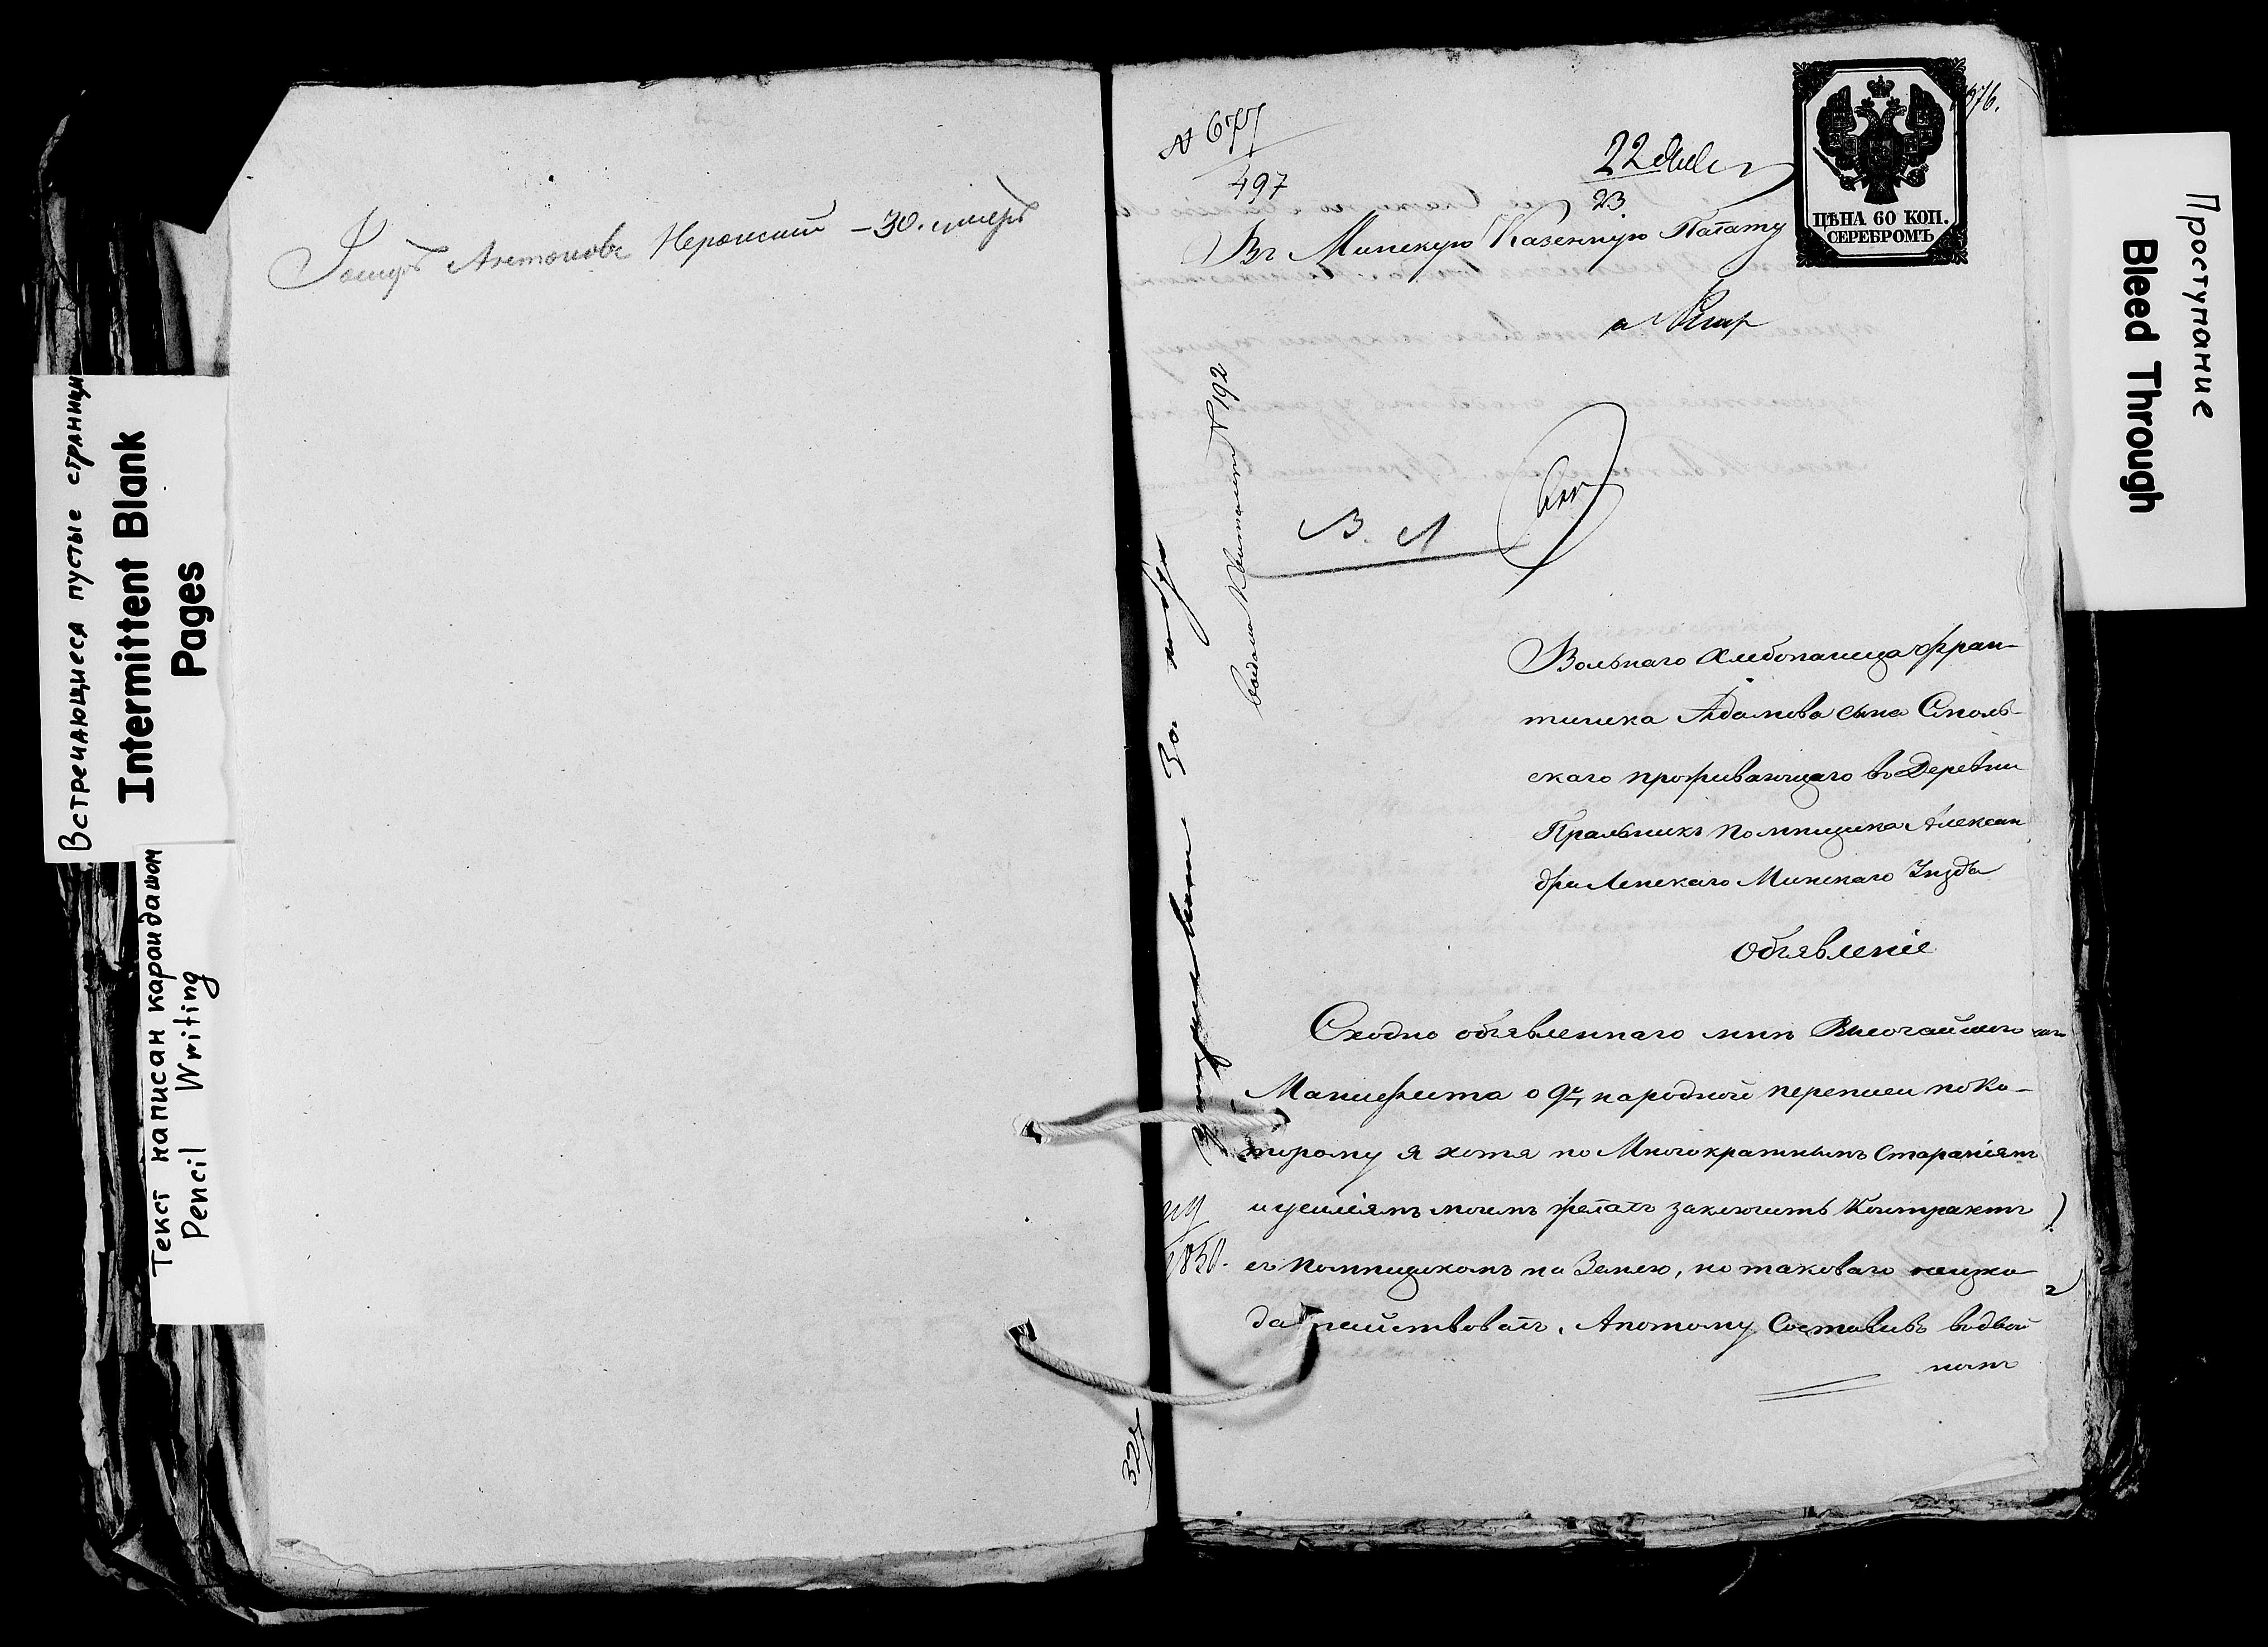 Встречающиеся пустые страницы
Intermittent Blank
Pages
Текст написан карандашом
Pencil Writing
Антоновъ Неронский – 30. умеръ
№ 677
497
22
23
ЦѢНА 60 КОП.
СЕРЕБРОМЪ
976.
Въ Минскую Казенную Палату
В. Л
выдана Квитанція № 192
Вольнаго Хлебопашца Фран-
тишка Адамова сына Споль-
скаго проживающаго въ Деревни
Помѣщика Алексан
дра Ленскаго Минскаго Уѣзда
Объявленіе
Сходно объявленнаго мнѣ Высочайшого
Манифеста о 9й народной переписи по ко-
торому я хотя по Многократнымъ стараніямъ
и усиліямъ моимъ желалъ заключить Контрактъ
съ помѣщикомъ на Землю, но таковаго
Апотому Составивъ вдвой
номъ
1850.
327
Проступание
Bleed Through